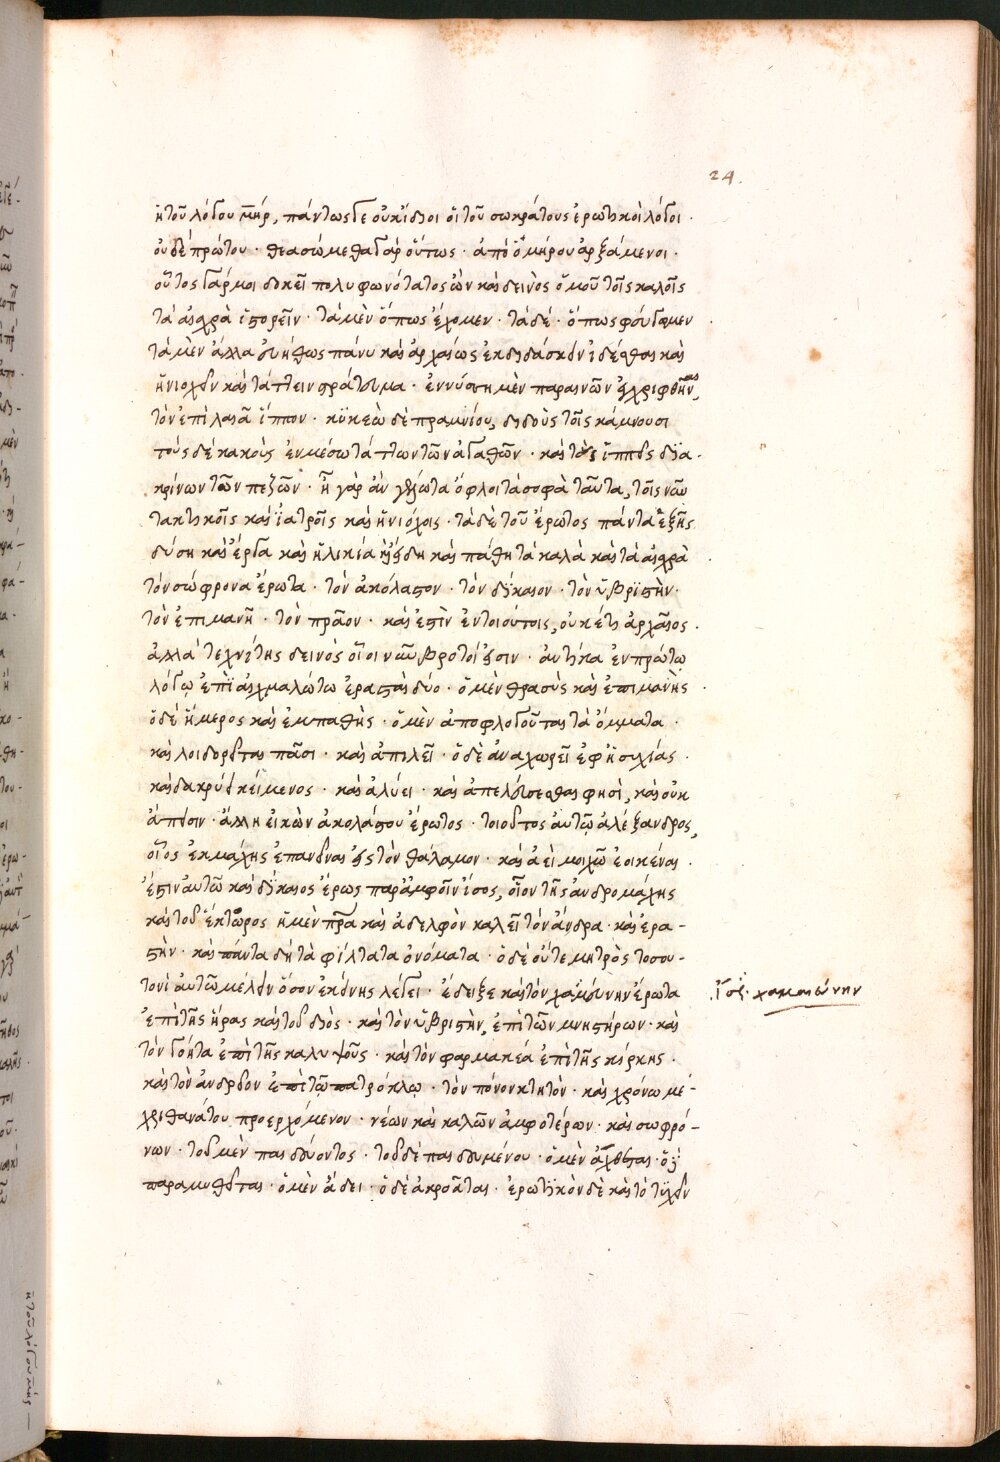 24.
ἢ τοῦ λόγου πηρ, πάντως δὲ οὐκ ἴδιοι οἱ τοῦ σωκράτους ἐρωτικοὶ λόγοι ·
οὐδὲ πρώτου · θεασώμεθα γὰρ οὕτως · ἀπὸ ὁμήρου ἀρξάμενοι ·
οὗτος γάρ μοι δοκεῖ πολυφωνότατος ὢν καὶ δεινὸς ὁμοῦ τοῖς καλοῖς
τὰ αἰσχρὰ ἱστορεῖν · τὰ μὲν ὅπως ἔχομεν · τὰ δὲ · ὅπως φεύγωμεν
τὰ μὲν ἄλλα εὐήθως πάνυ καὶ ἀρχαίως ἐκδιδάσκειν ἰδέσθαι καὶ
ἡνιοχεῖν καὶ τάττειν στράτευμα · ἐν νύσσῃ μὲν παραινῶν ἐγχριφθῆναι,
τὸν ἐπὶ λαιᾶ ἵππον · κυκεὼ δὲ πραμνίου, διδοὺς τοῖς κάμνουσι
τοὺς δὲ κακοὺς ἐν μέσω τάττων τῶν ἀγαθῶν · καὶ τοὺς ἱππεῖς δια-
κρίνων τῶν πεζῶν · ἦ γὰρ ἂν γέλωτα ὄφλοι τὰ σοφὰ ταῦτα, τοῖς νῦν
τακτικοῖς καὶ ἰατροῖς καὶ ἡνιόχοις · τὰ δὲ τοῦ ἔρωτος πάντα ἑξῆς
καὶ ἔργα καὶ ἡλικία εἴδη καὶ πάθη τὰ καλὰ καὶ τὰ αἰσχρὰ
τὸν σώφρονα ἔρωτα · τὸν ἀκόλαστον · τὸν δίκαιον · τὸν ὑβριστὴν ·
τὸν ἐπιμανῆ · τὸν πρᾶον · καὶ ἔστὶν ἐν τοιούτοις, οὐκέτι ἀρχαῖος ·
ἀλλὰ τεχνίτης δεινὸς οἷοι νῦν βροτοί εἰσιν · αὐτίκα ἐν πρώτῳ
λόγῳ ἐπὶ αἰχμαλώτω ἐρασταὶ δύο · ὁ μὲν θρασὺς καὶ ἐπιμανὴς ·
ὁ δὲ ἥμερος καὶ ἐμπαθὴς · ὁ μὲν ἀποφλογοῦται τὰ ὄμματα ·
καὶ λοιδορεῖται πᾶσι · καὶ ἀπειλεῖ · ὁ δὲ ἀναχωρεῖ ἐφ' ἡσυχίας ·
καὶ δακρύει κείμενος · καὶ ἀλύει · καὶ ἀπελεύσεσθαι φησὶ, καὶ οὐκ
ἄπεισιν · ἄλλη εἰκὼν ἀκολάστου ἔρωτος · τοιοῦτος αὐτῷ ἀλέξανδρος,
οἷος ἐκ μάχης ἐπανεῖναι εἰς τὸν θάλαμον · καὶ ἀεὶ μοιχῷ ἐοικέναι ·
ἔστιν αὐτῶ καὶ δίκαιος ἔρως παρ' ἀμφοῖν ἴσος, οἷον τῆς ἀνδρομάχης
καὶ τοῦ ἕκτορος ἡ μὲν πρα καὶ ἀδελφὸν καλεῖ τὸν ἄνδρα · καὶ ἐρα-
στὴν · καὶ πάντα δὴ τὰ φίλτατα ὀνόματα · ὁ δὲ οὔτε μητρὸς τοσοῦ-
τον αὐτῶ μέλειν ὅσον ἐκείνης λέγει · ἔδειξε καὶ τὸν χαμεύνην ἔρωτα
ἐπὶ τῆς ἥρας καὶ τοῦ διὸς · καὶ τὸν ὑβριστὴν, ἐπὶ τῶν μνηστήρων · καὶ
τὸν γόητα ἐπὶ τῆς καλυψοῦς · καὶ τὸν φαρμακέα ἐπὶ τῆς κίρκης ·
καὶ τὸν ἀνδρεῖον ἐπὶ τῷ πατρόκλῳ · τὸν πόνον κτητὸν · καὶ χρόνω μέ-
χρι θανάτου προερχόμενον · νέων καὶ καλῶν ἀμφοτέρων · καὶ σωφρό-
νων · τοῦ μὲν παιδεύοντος · τοῦ δὲ παιδευμένου · ὁ μὲν ἄχθεται · ὁ δὲ
παραμυθεῖται · ὁ μὲν ᾄδει · ὁ δὲ ἀκροᾶται · ἐρωτικὸν δὲ καὶ τὸ τυχεῖν
χαμαιεύνην
ἢ τοῦ λόγου πηρ